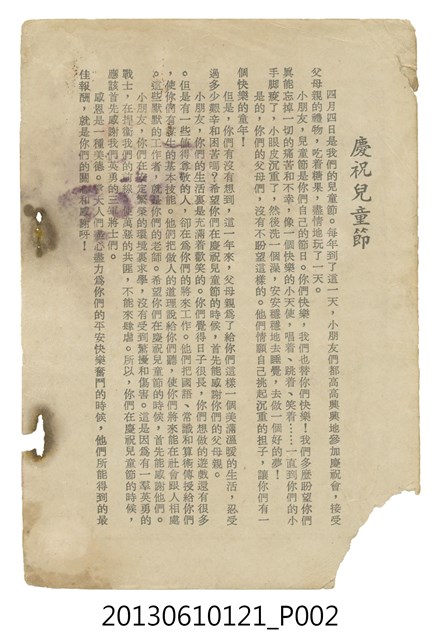 慶祝兒童節
四月四日是我們的兒童節。每年到了這一天,小朋友們都高高興興地參加慶祝會,接受
父母親的禮物,吃着糖果,盡情地玩了一天。
小朋友,兒童節是你們自己的節日。你們快樂,我們也替你們快樂!我們多麼盼望你們
眞能忘掉一切的痛苦和不幸,像一個快樂的小天使,唱着、跳着、笑着……一直到你們的小
手脚痠了,小眼皮沉重了,然後洗一個澡,安安穩穩地去睡覺,去做一個好的夢!
是的,你們的父母們,沒有不盼望這樣的。他們情願自己挑起沉重的担子,讓你們有一
個快樂的童年!
但是,你們有沒有想到,這一年來,父母親爲了給你們這樣一個美滿溫暖的生活,忍受
過多少艱辛和困苦嗎?希望你們在慶祝兒童節的時候,首先能感謝你們的父母親。
小朋友,你們的生活裏是充滿着歡笑的。你們覺得日子很長,你們想做的遊戲還有很多
。但是有一些值得尊敬的人,卻在爲你們的將來工作。他們把國語、常識和算術傳授給你們
,使你們有謀生的基本技能。他們把做人的道理說給你們聽,使你們將來能在社會跟人相處
。這些默默的工作者,就是你們的老師。希望你們在慶祝兒童節的時候,首先能感謝他們。
小朋友,你們在安定繁榮的環境裏求學,沒有受到驚擾和傷害。這是因爲有一羣英勇的
戰士,在捍衛我們的海疆,使萬惡的共匪,不能來肆虐。所以,你們在慶祝兒童節的時候,
應該首先感謝我們英勇的三軍將士們。
感恩是一種美德。當大人們盡心盡力爲你們的平安快樂奮鬥的時候,他們所能得到的最
佳報酬,就是你們的關心和感謝呀!
20130610121_P002